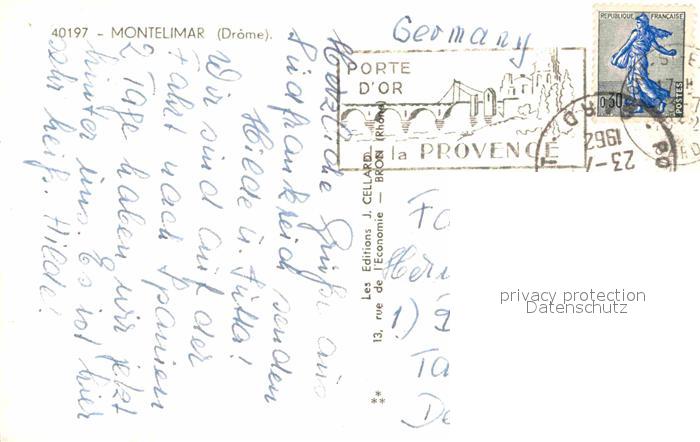 40197 - MONTELIMAR (Drôme).
Germany
REPUBLIQUE FRANÇAISE
0,30
POSTES
PORTE
D'OR
la PROVENCE
23-
1962
Herzliche Grüße aus
Südfrankreich senden
Hilde u. Jutta!
Wir sind auf der
Fahrt nach Spanien
2 Tage haben wir jetzt
hinter uns. Es ist hier
sehr heiß. Hilde!
Les Editions J. CELLARD
13, rue de l'Economie — BRON (Rhône)
**
Fa
Her
1)
Ta
De
privacy protection
Datenschutz